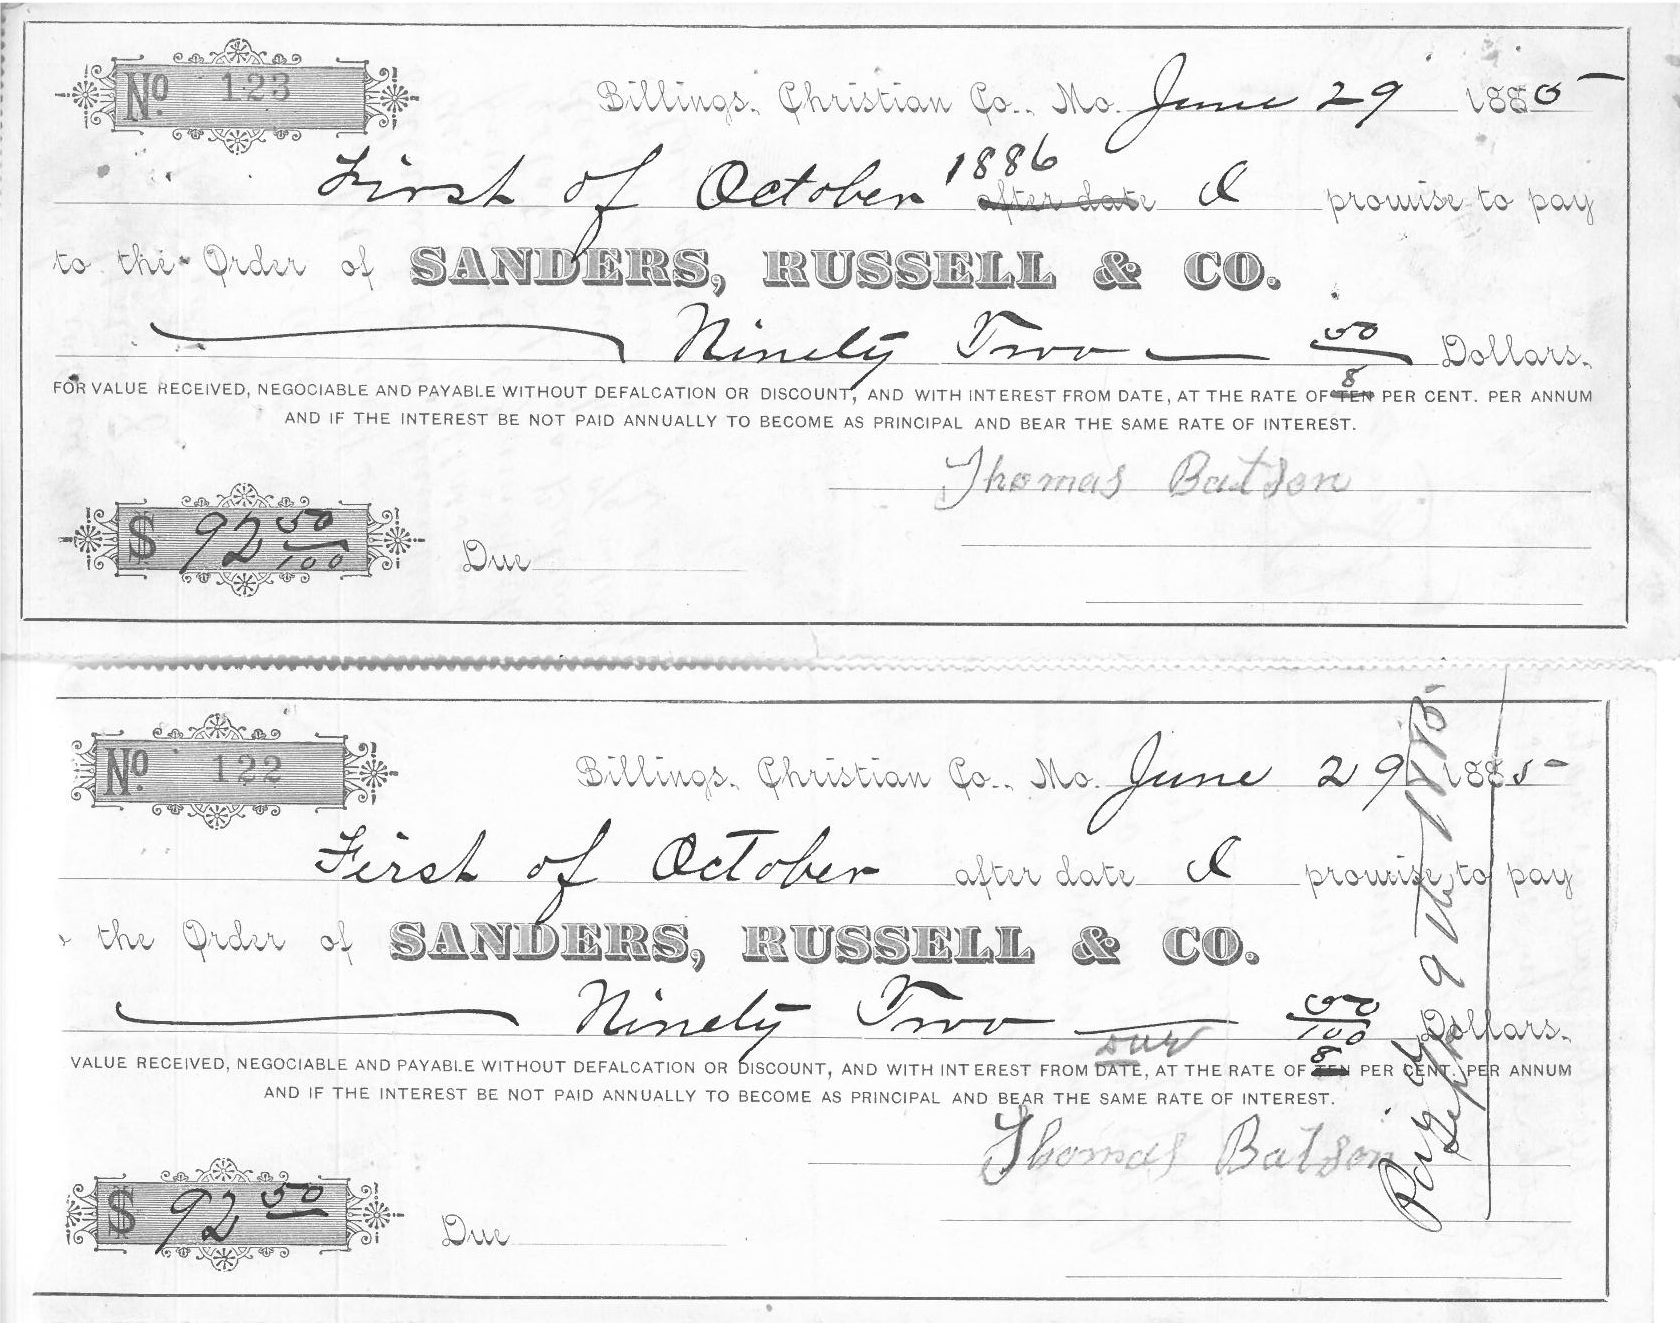 No. 123
Billings, Christian Co., Mo. June 29 1885
First of October 1886 after date I promise to pay
to the Order of SANDERS, RUSSELL & CO.
Ninety Two 50 Dollars.
8
FOR VALUE RECEIVED, NEGOCIABLE AND PAYABLE WITHOUT DEFALCATION OR DISCOUNT, AND WITH INTEREST FROM DATE, AT THE RATE OF TEN PER CENT. PER ANNUM
AND IF THE INTEREST BE NOT PAID ANNUALLY TO BECOME AS PRINCIPAL AND BEAR THE SAME RATE OF INTEREST.
Thomas Batson
$ 92 50/100
Due
No. 122
Billings, Christian Co., Mo. June 29 1885
First of October after date I promise to pay
the Order of SANDERS, RUSSELL & CO.
Ninety Two 50/100 Dollars.
due
8
VALUE RECEIVED, NEGOCIABLE AND PAYABLE WITHOUT DEFALCATION OR DISCOUNT, AND WITH INTEREST FROM DATE, AT THE RATE OF TEN PER CENT. PER ANNUM
AND IF THE INTEREST BE NOT PAID ANNUALLY TO BECOME AS PRINCIPAL AND BEAR THE SAME RATE OF INTEREST.
Thomas Batson
$ 92 50
Due
Paid
Sept 9th 1885